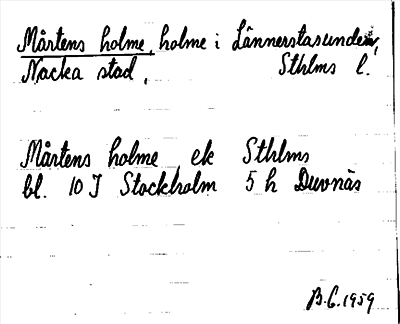 Mårtens holme, holme i Lännerstasunden,
Nacka stad, Sthlms l.
Mårtens holme ek Sthlms
bl. 10 I Stockholm 5 h Duvnäs
B.G. 1959